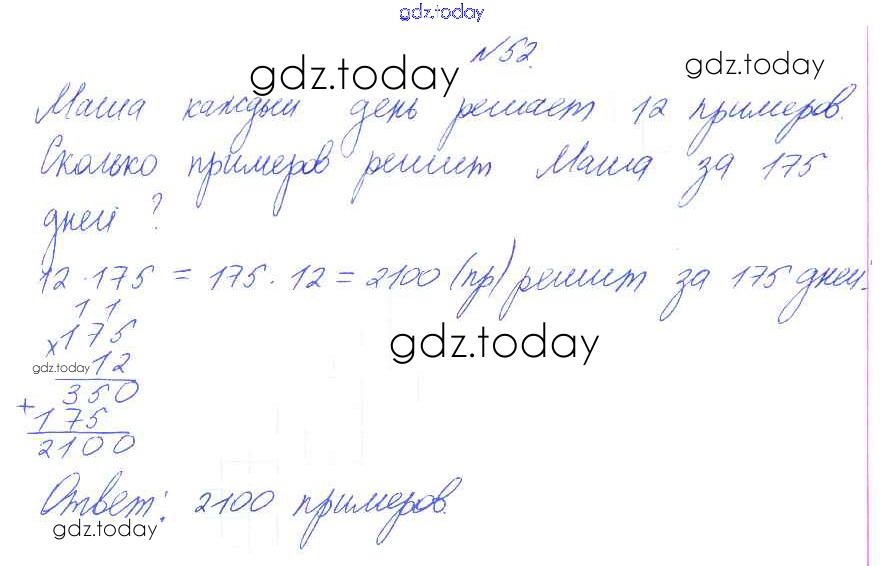 gdz.today
№52.
gdz.today gdz.today
Маша каждый день решает 12 примеров.
Сколько примеров решит Маша за 175
дней?
12 · 175 = 175 · 12 = 2100 (пр) решит за 175 дней.
1 1
×175
gdz.today 12
350
+
175
2100
gdz.today
Ответ: 2100 примеров.
gdz.today